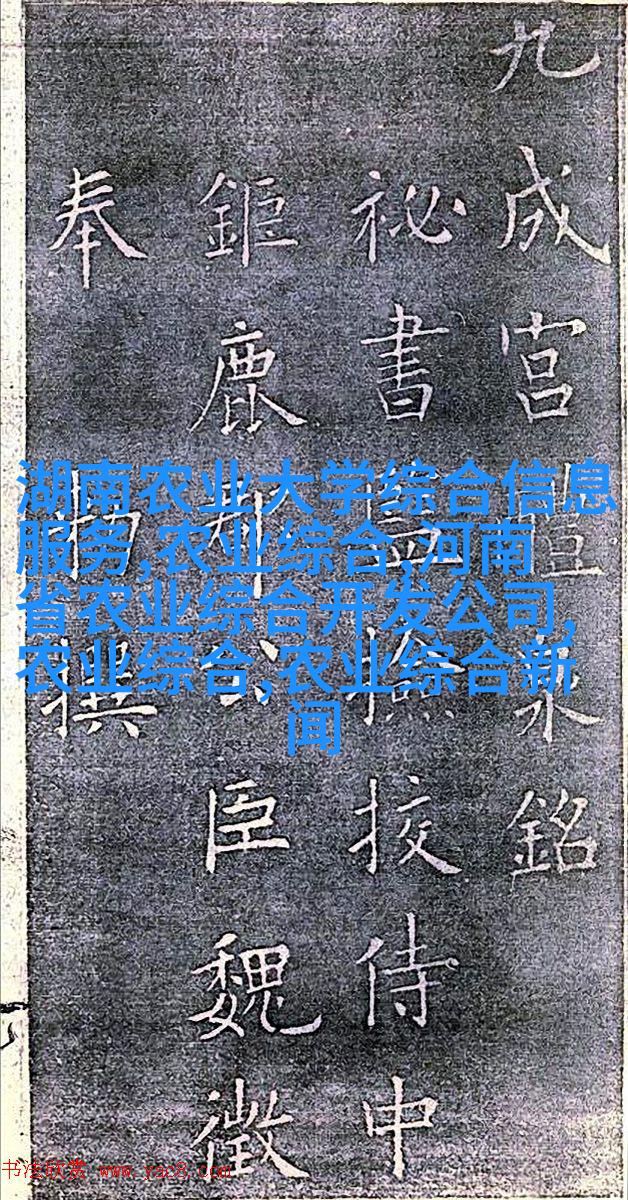 九成宫醴泉銘
祕書監檢挍侍中
鉅鹿郡公臣魏徵
奉勑撰
湖南农业大学综合信息
服务,农业综合,河南
省农业综合开发公司,
农业综合,农业综合新
闻
书法欣赏 www.yac8.com